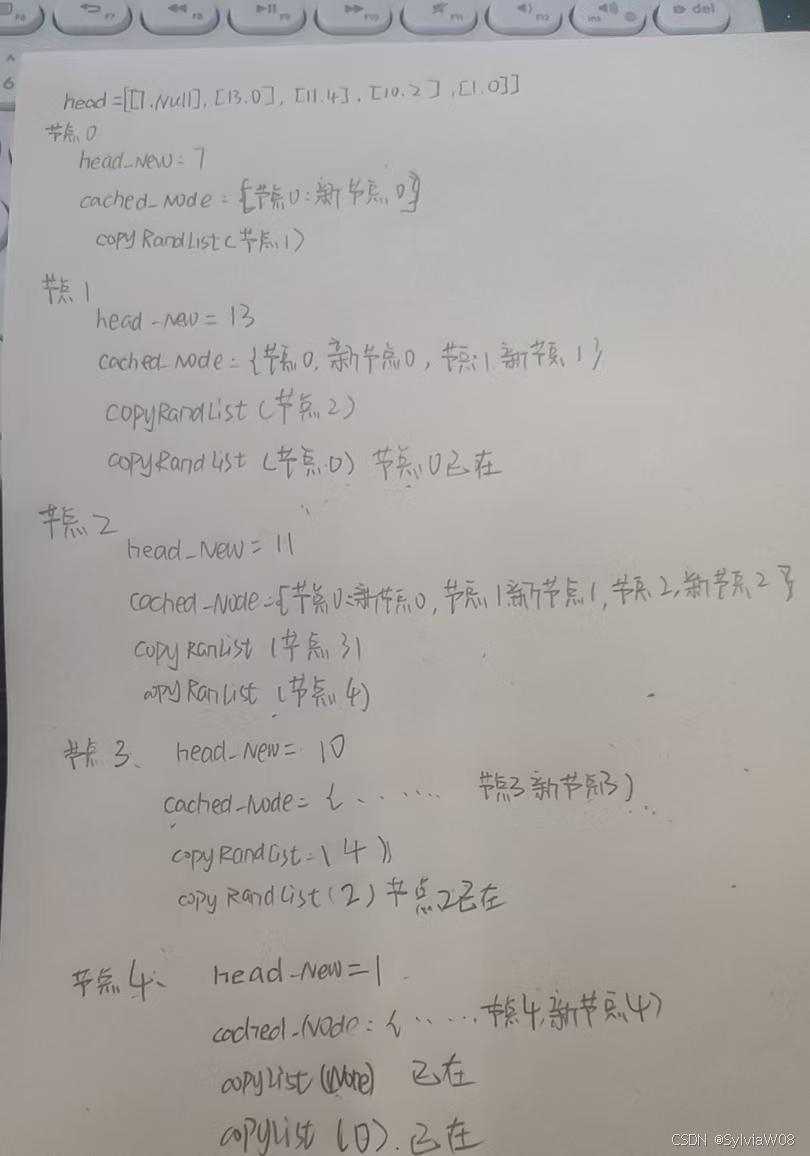 F6 F7 F8 F9 F10 F11 F12 ins del
6
head=[[7.Null], [13.0], [11.4], [10.2], [1.0]]
节点0
head_new=7
cached_Node={节点0:新节点0}
copyRandList(节点1)
节点1
head_new=13
cached_Node={节点0,新节点0,节点1 新节点1}
copyRandList(节点2)
copyRandList(节点0) 节点0已在
节点2
head_New=11
cached_Node={节点0:新节点0,节点1新节点1,节点2,新节点2}
copyRanList(节点3)
copyRanList(节点4)
节点3、 head_New= 10
cached_Node={...... 节点3 新节点3)...
copyRandList=(4)
copyRandList(2)节点2已在
节点4、 head_New=1
cached_Node={......节点4,新节点4)
copyList(None) 已在
copyList(0).已在
CSDN @SylviaW08